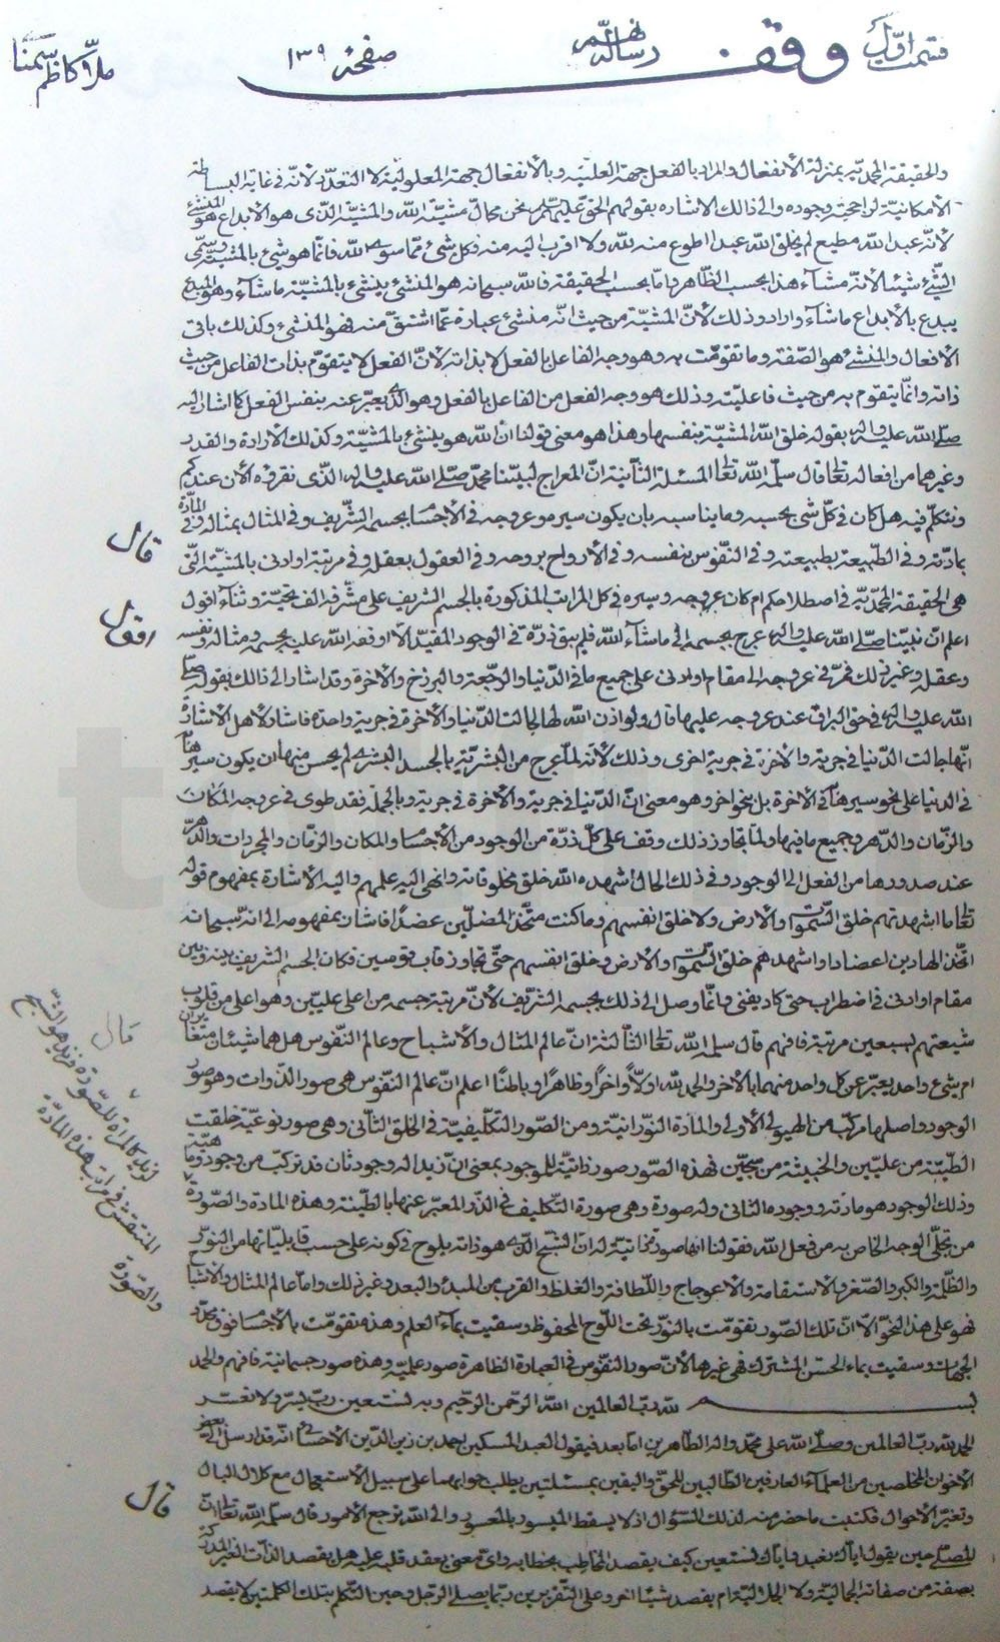 قسمت اوّل وقف رساله نهم صفحهٔ ١٣٩ ملّا كاظم سمنا
والحقيقة المحمدية بمنزلة الانفعال والمراد بالفعل جهة العلية وبالانفعال جهة المعلولية لا التعدد لانّه في غاية البساطة
الامكانية لراجحية وجوده والى ذلك الاشارة بقولهم الحق عليهم نحن محالّ مشيّة الله والمشيّة الذى هو الابداع هو المنشئ
لانّه عبد الله مطيع لم يخلق الله عبدا اطوع منه لله ولا اقرب اليه منه فكل شئ ممّا سوى الله فانّما هو شئ بالمشيّة وسمّى
الشئ شيئا لانّه مشاء هذا بحسب الظاهر وامّا بحسب الحقيقة فالله سبحانه هو المنشئ ينشئ بالمشيّة ما شاء وهو المبدع
يبدع بالابداع ما شاء واراد وذلك لانّ المشيّة من حيث انّه منشئ عبارة عمّا اشتق منه فهو المنشئ وكذلك باقى
الافعال والمنشئ هو الصفة وما تقومت به وهو وجه الفاعل بالفعل لا بذاته لانّ الفعل لا يتقوم بذات الفاعل من حيث
ذاته وانّما يتقوم به من حيث فاعليته وذلك هو وجه الفعل من الفاعل بالفعل وهو الذى يعبّر عنه بنفس الفعل كما اشار اليه
صلّى الله عليه واله بقوله خلق الله المشيّة بنفسها وهذا هو معنى قولنا انّ الله هو ينشئ بالمشيّة وكذلك الارادة والقدر
وغيرهما من افعاله تعالى قال سلّمه الله تعالى المسئلة الثانية انّ المعراج لنبيّنا محمّد صلّى الله عليه واله الذى نقرؤه الان عندكم
ونتكلم فيه هل كان في كل شئ بحسبه وما يناسبه بان يكون سيره وعروجه في الاجسام بجسمه الشريف وفي المثال بمثاله وفي المادّة
بمادّته وفي الطبيعة بطبيعته وفي النفوس بنفسه وفي الارواح بروحه وفي العقول بعقله وفي مرتبة او ادنى بالمشيّة التى
هى الحقيقة المحمّدية في اصطلاحكم ام كان عروجه وسيره في كل المراتب المذكورة بالجسم الشريف على مشرّفه الف تحيّة وثناء اقول
اعلم انّ نبيّنا صلّى الله عليه واله عرج بجسمه الى ما شاء الله فلم يبق ذرّة في الوجود المقيّد الّا اوقفه الله عليه بجسمه ومثاله ونفسه
وعقله وغير ذلك فمرّ في عروجه الى مقام او ادنى على جميع ما في الدنيا والرجعة والبرزخ والاخرة وقد اشار الى ذلك بقوله صلّى
الله عليه واله في حق البراق عند عروجه عليها قال ولو اذن الله لها لجالت الدنيا والاخرة في جرية واحدة فاشار لاهل الاشارة
انّها جالت الدنيا في جرية والاخرة في جرية اخرى وذلك لانّه لمّا عرج من البشريّة بالجسد البشرى لم يحسن منها ان يكون سيرها
في الدنيا على نحو سيرها في الاخرة بل بنحو اخر وهو معنى انّ الدنيا في جرية والاخرة في جرية وبالجملة فقد طوى في عروجه المكان
والزمان والدهر وجميع ما فيها ولمّا تجاوز ذلك وقف على كلّ ذرّة من الوجود من الاجسام والمكان والزمان والمجردات والدهر
عند صدورها من الفعل الى الوجود وفي ذلك الحال اشهده الله خلق مخلوقاته وانهى اليه علمهم واليه الاشارة بمفهوم قوله
تعالى ما اشهدتهم خلق السموات والارض ولا خلق انفسهم وما كنت متّخذ المضلّين عضدا فاشار بمفهومه الى انّه سبحانه
اتّخذ الهادين اعضادا واشهدهم خلق السموات والارض وخلق انفسهم حتى تجاوز قاب قوسين فكان الجسم الشريف بينه وبين
مقام او ادنى في اضطراب حتى كاد يفنى وانّما وصل الى ذلك بجسمه الشريف لانّ مرتبة جسمه من اعلى عليّين وهو اعلى من قلوب
شيعتهم بسبعين مرتبة فافهم قال سلّمه الله تعالى الثالثة انّ عالم المثال والاشباح وعالم النفوس هل هما شيئان متغايران
ام شئ واحد يعبّر عن كل واحد منهما بالاخر والحمد لله اولا واخرا وظاهرا وباطنا اعلم انّ عالم النفوس هى صور الذوات وهو صور
الوجود واصلها مركّب من الهيولى الاولى والمادة النورانيّة ومن الصور التكليفيّة في الخلق الثانى وهى صور نوعيّة خلقت
الطيّبة من عليّين والخبيثة من سجّين فهذه الصور صور ذاتيّة للموجود بمعنى انّ زيدا له وجود ثان قد تركّب من وجود وماهيّة
وذلك الوجود هو مادّته ووجوده الثانى وله صورة وهى صورة التكليف في الذرّ المعبّر عنها بالطينة وهذه المادة والصورة
من تجلّى الوجه الخاص به من فعل الله فقولنا انها صور ذاتيّة له انّ الشبح الذى هو ذاته يلوح في كونه على حسب قابليّاتها من النور
والظلمة والكبر والصغر والاستقامة والاعوجاج واللطافة والغلظ والقرب من المبدء والبعد وغير ذلك وامّا عالم المثال والاشباح
فهو على هذا النحو الّا انّ تلك الصور تقومت بالنور تحت اللوح المحفوظ وسقيت بماء العلم وهذه تقومت بالاجسام فوق محدّد
الجهات وسقيت بماء الحسّ المشترك فهى غيرها لانّ صور النفوس في العبارة الظاهرة صور علميّة وهذه صور جسمانيّة فافهم والحمد
لله ربّ العالمين بسم الله الرحمن الرحيم وبه نستعين ربّ يسّر ولا تعسّر
الحمد لله ربّ العالمين وصلّى الله على محمّد واله الطاهرين امّا بعد فيقول العبد المسكين احمد بن زين الدين الاحسائى انّه قد ارسل الىّ بعض
الاخوان المخلصين من العلماء العارفين الطالبين للحقّ واليقين بمسئلتين يطلب جوابهما على سبيل الاستعجال مع كلال البال
وتغيّر الاحوال فكتبت ما حضرنى لذلك السؤال اذ لا يسقط الميسور بالمعسور والى الله ترجع الامور قال سلّمه الله تعالى انّ
المصلّى حين يقول اياك نعبد واياك نستعين كيف يقصد المخاطب بخطابه واىّ معنى يعقد قلبه عليه هل يقصد الذات الغير المدركة
بصفة من صفاته الجماليّة ولا الجلاليّة ام يقصد شيئا اخر وعلى التقديرين ربّما يصلّى الرجل وحين التكلم بتلك الكلمتين لا يقصد
قال
اقول
قال
لزيد كالمرآة للصورة فزيد هو الشبح
المنتقش في مرآت هذه المادّة
والصورة
قال